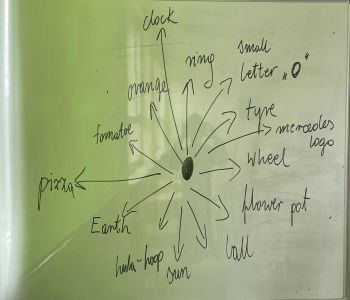 clock
ring
small
letter „O"
orange
tyre
mercedes
logo
tomatoe
wheel
pizza
flower pot
Earth
ball
hula-hoop
sun